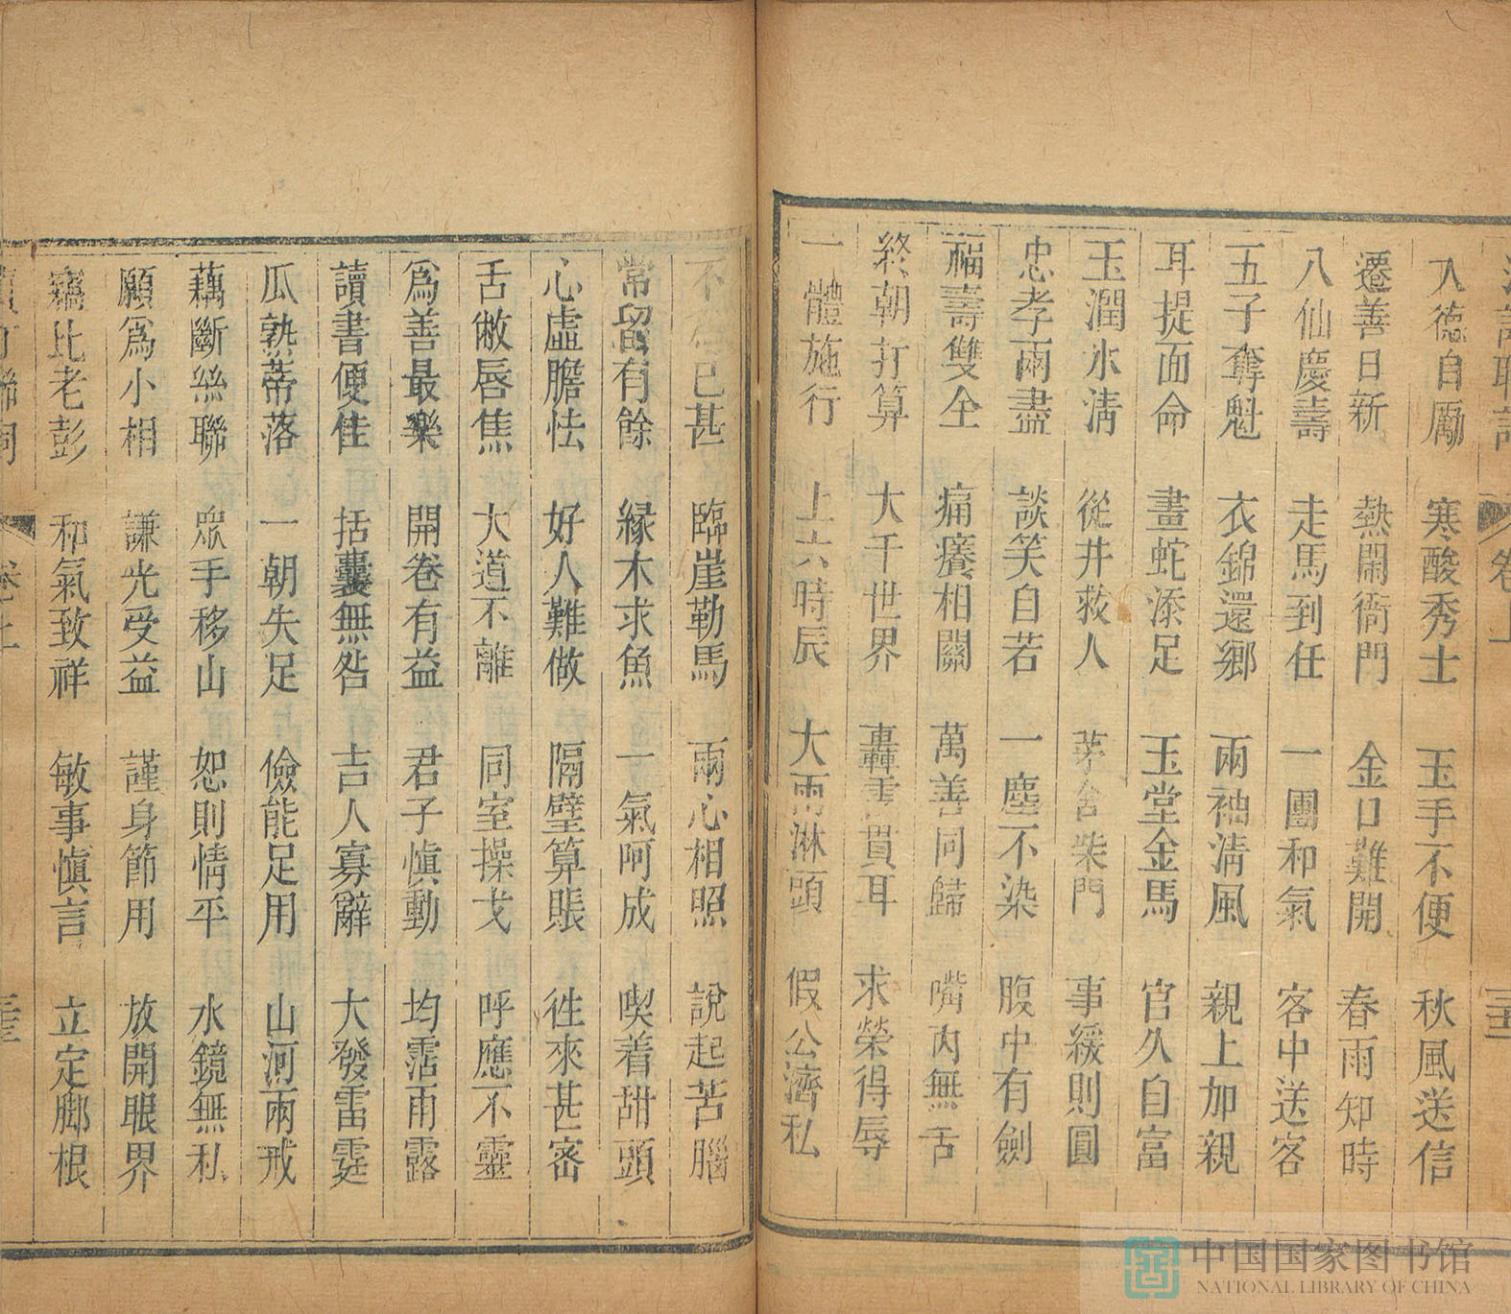 入德自勵　寒酸秀士　玉手不便　秋風送信
遷善日新　熱鬧衙門　金口難開　春雨知時
八仙慶壽　走馬到任　一團和氣　客中送客
五子奪魁　衣錦還鄉　兩袖清風　親上加親
耳提面命　畫蛇添足　玉堂金馬　官久自富
玉潤冰清　從井救人　茅舍柴門　事緩則圓
忠孝兩盡　談笑自若　一塵不染　腹中有劍
福壽雙全　痛癢相關　萬善同歸　嘴內無舌
終朝打算　大千世界　轟雷貫耳　求榮得辱
一體施行　上六時辰　大雨淋頭　假公濟私
不　已甚　臨崖勒馬　兩心相照　說起苦腦
常留有餘　緣木求魚　一氣呵成　喫着甜頭
心虛膽怯　好人難做　隔壁算賬　徃來甚密
舌敝唇焦　大道不離　同室操戈　呼應不靈
爲善最樂　開卷有益　君子慎動　均霑雨露
讀書便佳　括囊無咎　吉人寡辭　大發雷霆
瓜熟蒂落　一朝失足　儉能足用　山河兩戒
藕斷絲聯　衆手移山　恕則情平　水鏡無私
願爲小相　謙光受益　謹身節用　放開眼界
竊比老彭　和氣致祥　敏事慎言　立定腳根
卷上
中国国家图书馆
NATIONAL LIBRARY OF CHINA